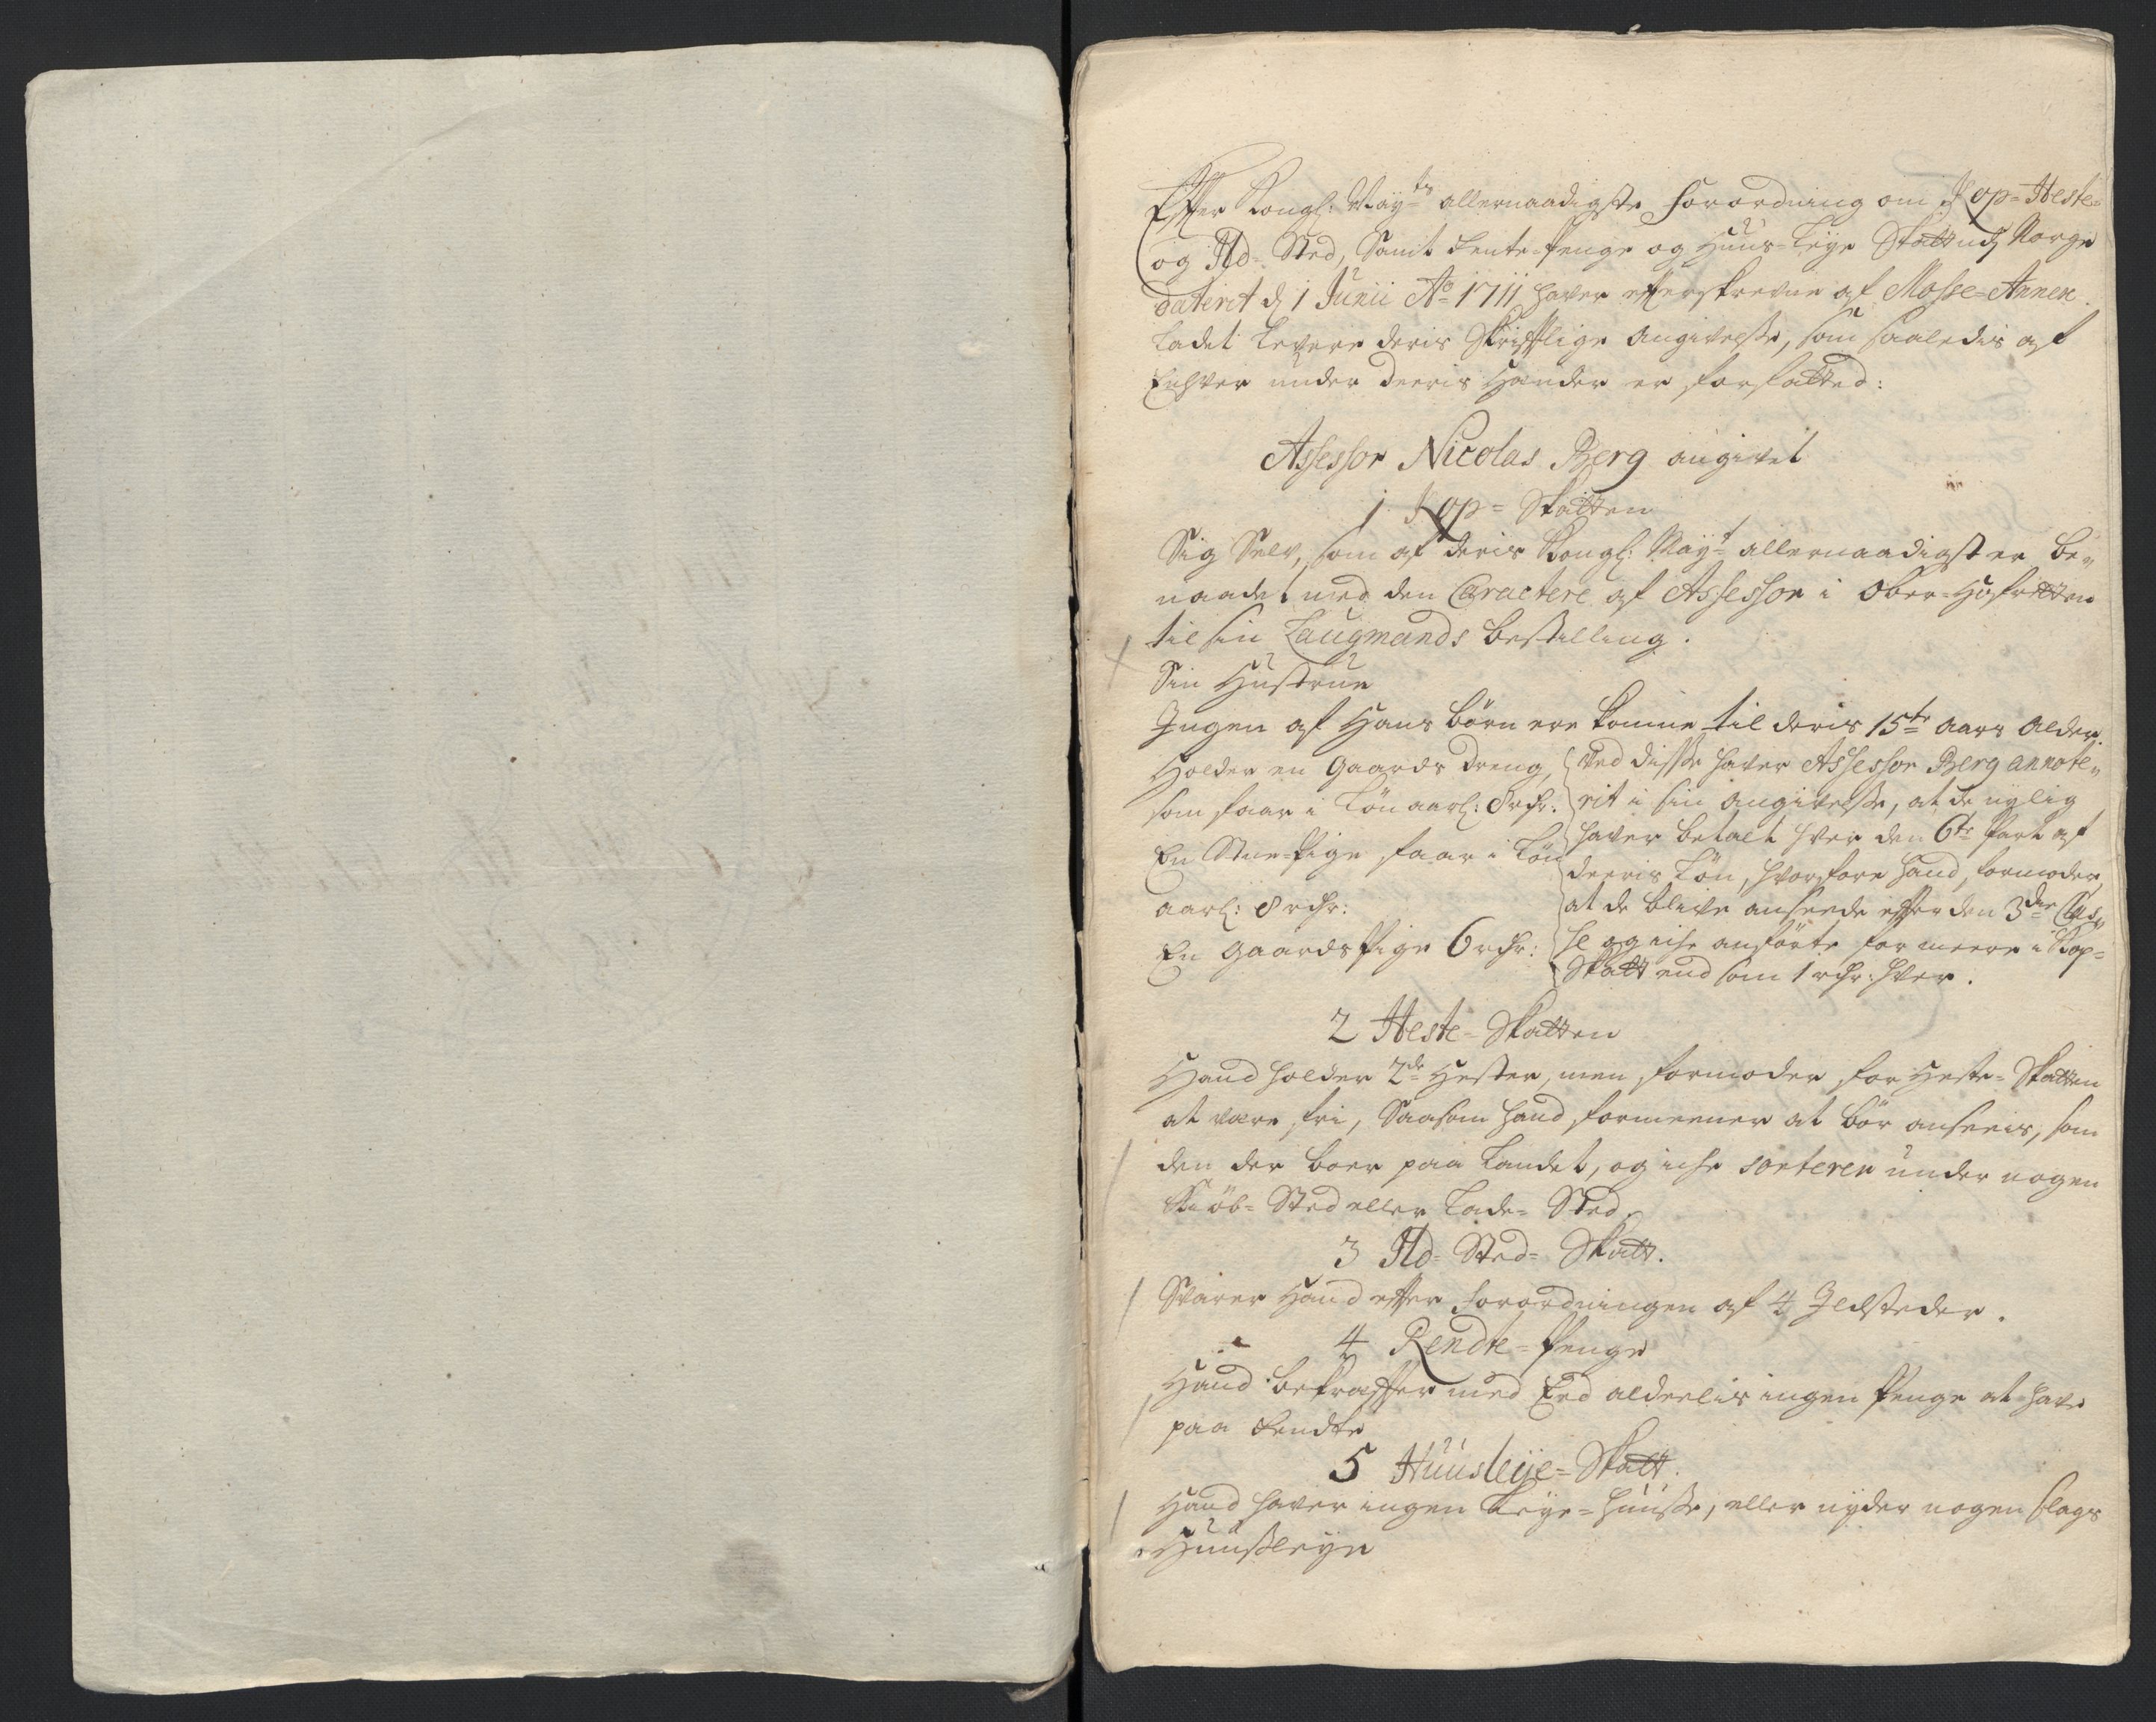 Effter Kongl: May:ts allernaadigste Forordning om Kop-Heste-
og Ild-Sted, Samt Rente-Penge og Huus-Leye Skatt udj Norge
daterit d 1 Junii Ao 1711 haver efterskrevne af Mosse-Annex
ladet levere deris Skrifftlige Angivelse, som saaledis af
Enhver under deeris Hænder er forfatted:
Assessor Nicolas Berg angivet
1 Kop-Skatten
Sig Selv, som af deris Kongl: May:t allernaadigst er be-
naadet med den Caractere af Assessor i Ober-Hofretten
til sin Laugmands bestilling.
Sin Hustrue
Ingen af Hans børn ere komne til deris 15te aars Alder.
Holder en Gaards dreng,
som faar i Løn aarl: 8 rdr.
En Stue-Pige faar i Løn
aarl: 8 rdr:
En Gaards Pige 6 rdr:
Ved disse haver Assessor Berg annote-
rit i sin Angivelse, at de nylig
haver betalt hver den 6te Part af
deeris Løn, hvorfore hand formoder,
at de blive anseede efter den 3die Clas-
se og iche anførte for meere i Kop-
Skatt end som 1 rdr: hver.
2 Heste-Skatten
Hand holder 2de Hester, men formoder for Heste-Skatten
at være fri, Saasom hand formeener at bør ansees, som
den der boer paa Landet, og iche sorterer under nogen
Kiøb-Sted eller Lade-Sted.
3 Ild-Sted-Skatt.
Svarer Hand efter Forordningen af 4 Ildsteder.
4 Rendte-Penge
Hand bekraffter med Eed aldeelis ingen Penge at have
paa Rendte
5 Huusleye-Skatt.
Hand haver ingen Leye-Huuse, eller nyder nogen slags
Huusleye